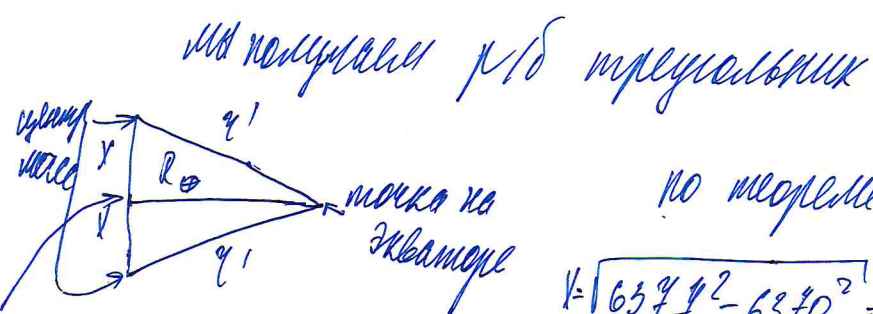 мы получаем р/б треугольник
центр
масс
x
R⊕
x
r'
r'
точка на
экваторе
по теореме
x=√6371²-6370²